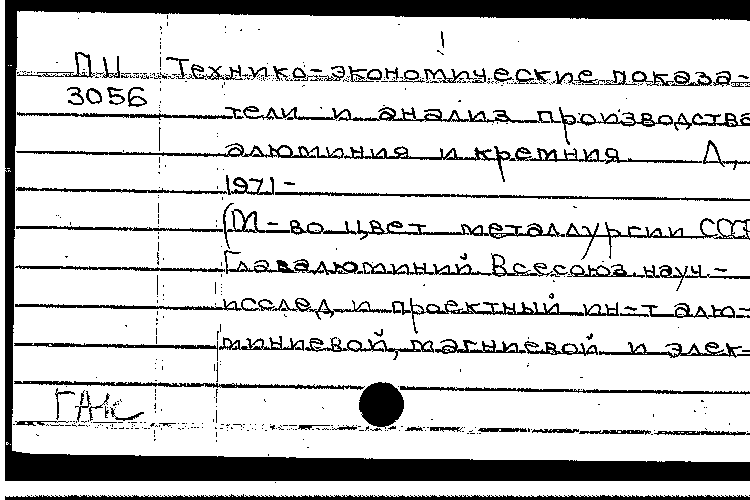 ПII Технико-экономические показа-
3056 тели и анализ производства
алюминия и кремния. Л,
1971-
(М-во цвет металлургии СССР
Главалюминий. Всесоюз. науч.-
исслед и проектный ин-т алю-
миниевой, магниевой и элек-
ГАК